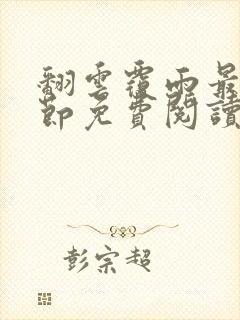 翻雲覆雨最
節免費閱讀
彭宗超